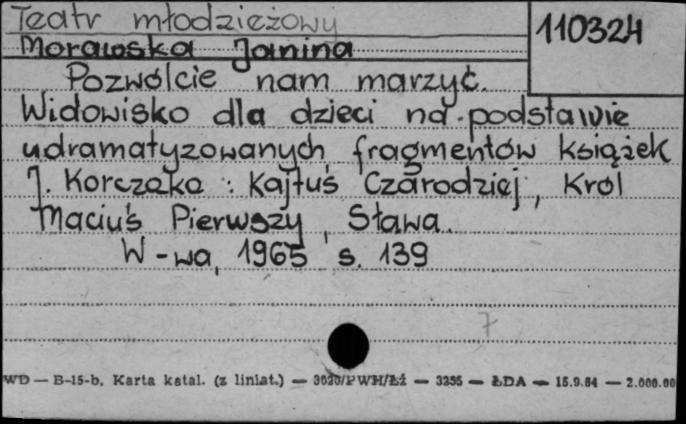 Teatr młodzieżowy
110324
Morawska Janina
Pozwólcie nam marzyć.
Widowisko dla dzieci na podstawie
udramatyzowanych fragmentów książek
J. Korczaka : Kajtuś Czarodziej, Król
Maciuś Pierwszy, Sława.
W-wa, 1965 s. 139
7
WD — B-15-b. Karta katal. (z liniat.) — 3030/PWH/Łż — 3255 — ŁDA — 15.9.64 — 2.000.00